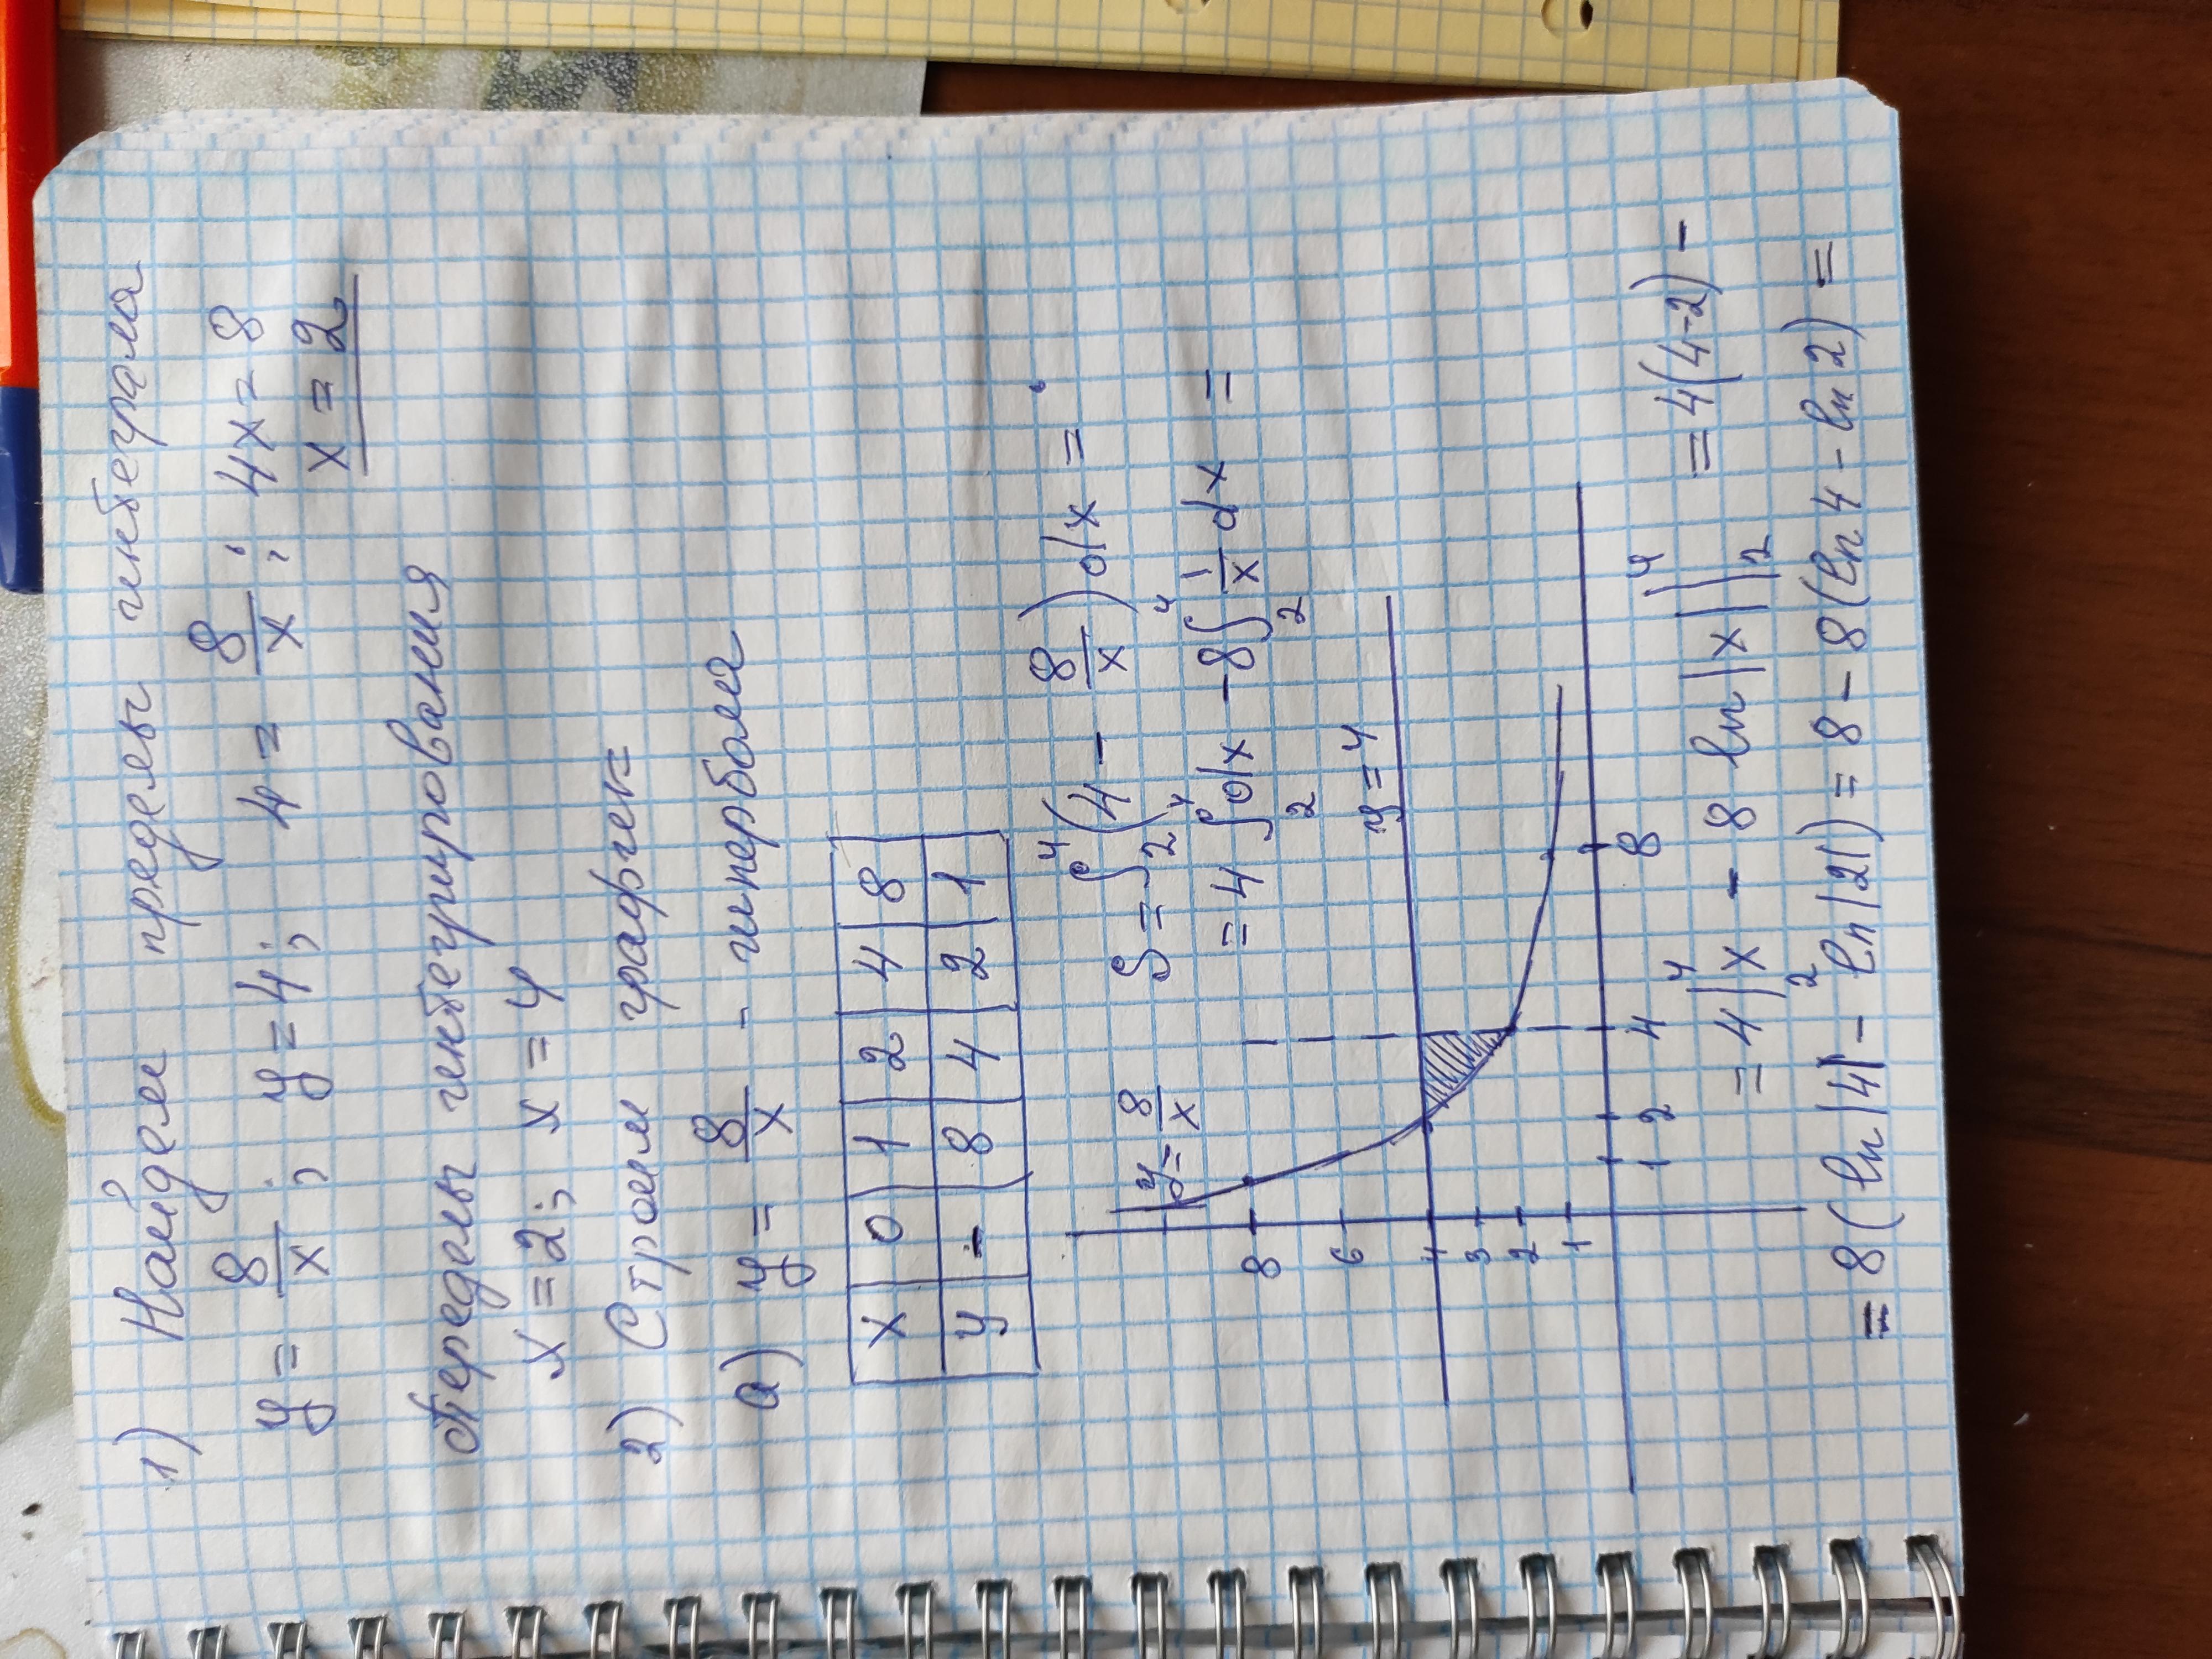 1) Найдем пределы интеграла
y = 8/x; y = 4; 4 = 8/x; 4x = 8
x = 2
Пределы интегрирования
x = 2; x = 4
2) Строим график
а) y = 8/x - гипербола
x 0 1 2 4 8
y - 8 4 2 1
S = ∫₂⁴ (4 - 8/x) dx =
= 4 ∫₂⁴ dx - 8 ∫₂⁴ 1/x dx =
y = 8/x
y = 4
8
6
4
3
2
1
1 2 4 8
= 4 |x|₂⁴ - 8 ln |x| |₂⁴ = 4(4-2) -
= 8 (ln |4| - ln |2|) = 8 - 8 (ln 4 - ln 2) =